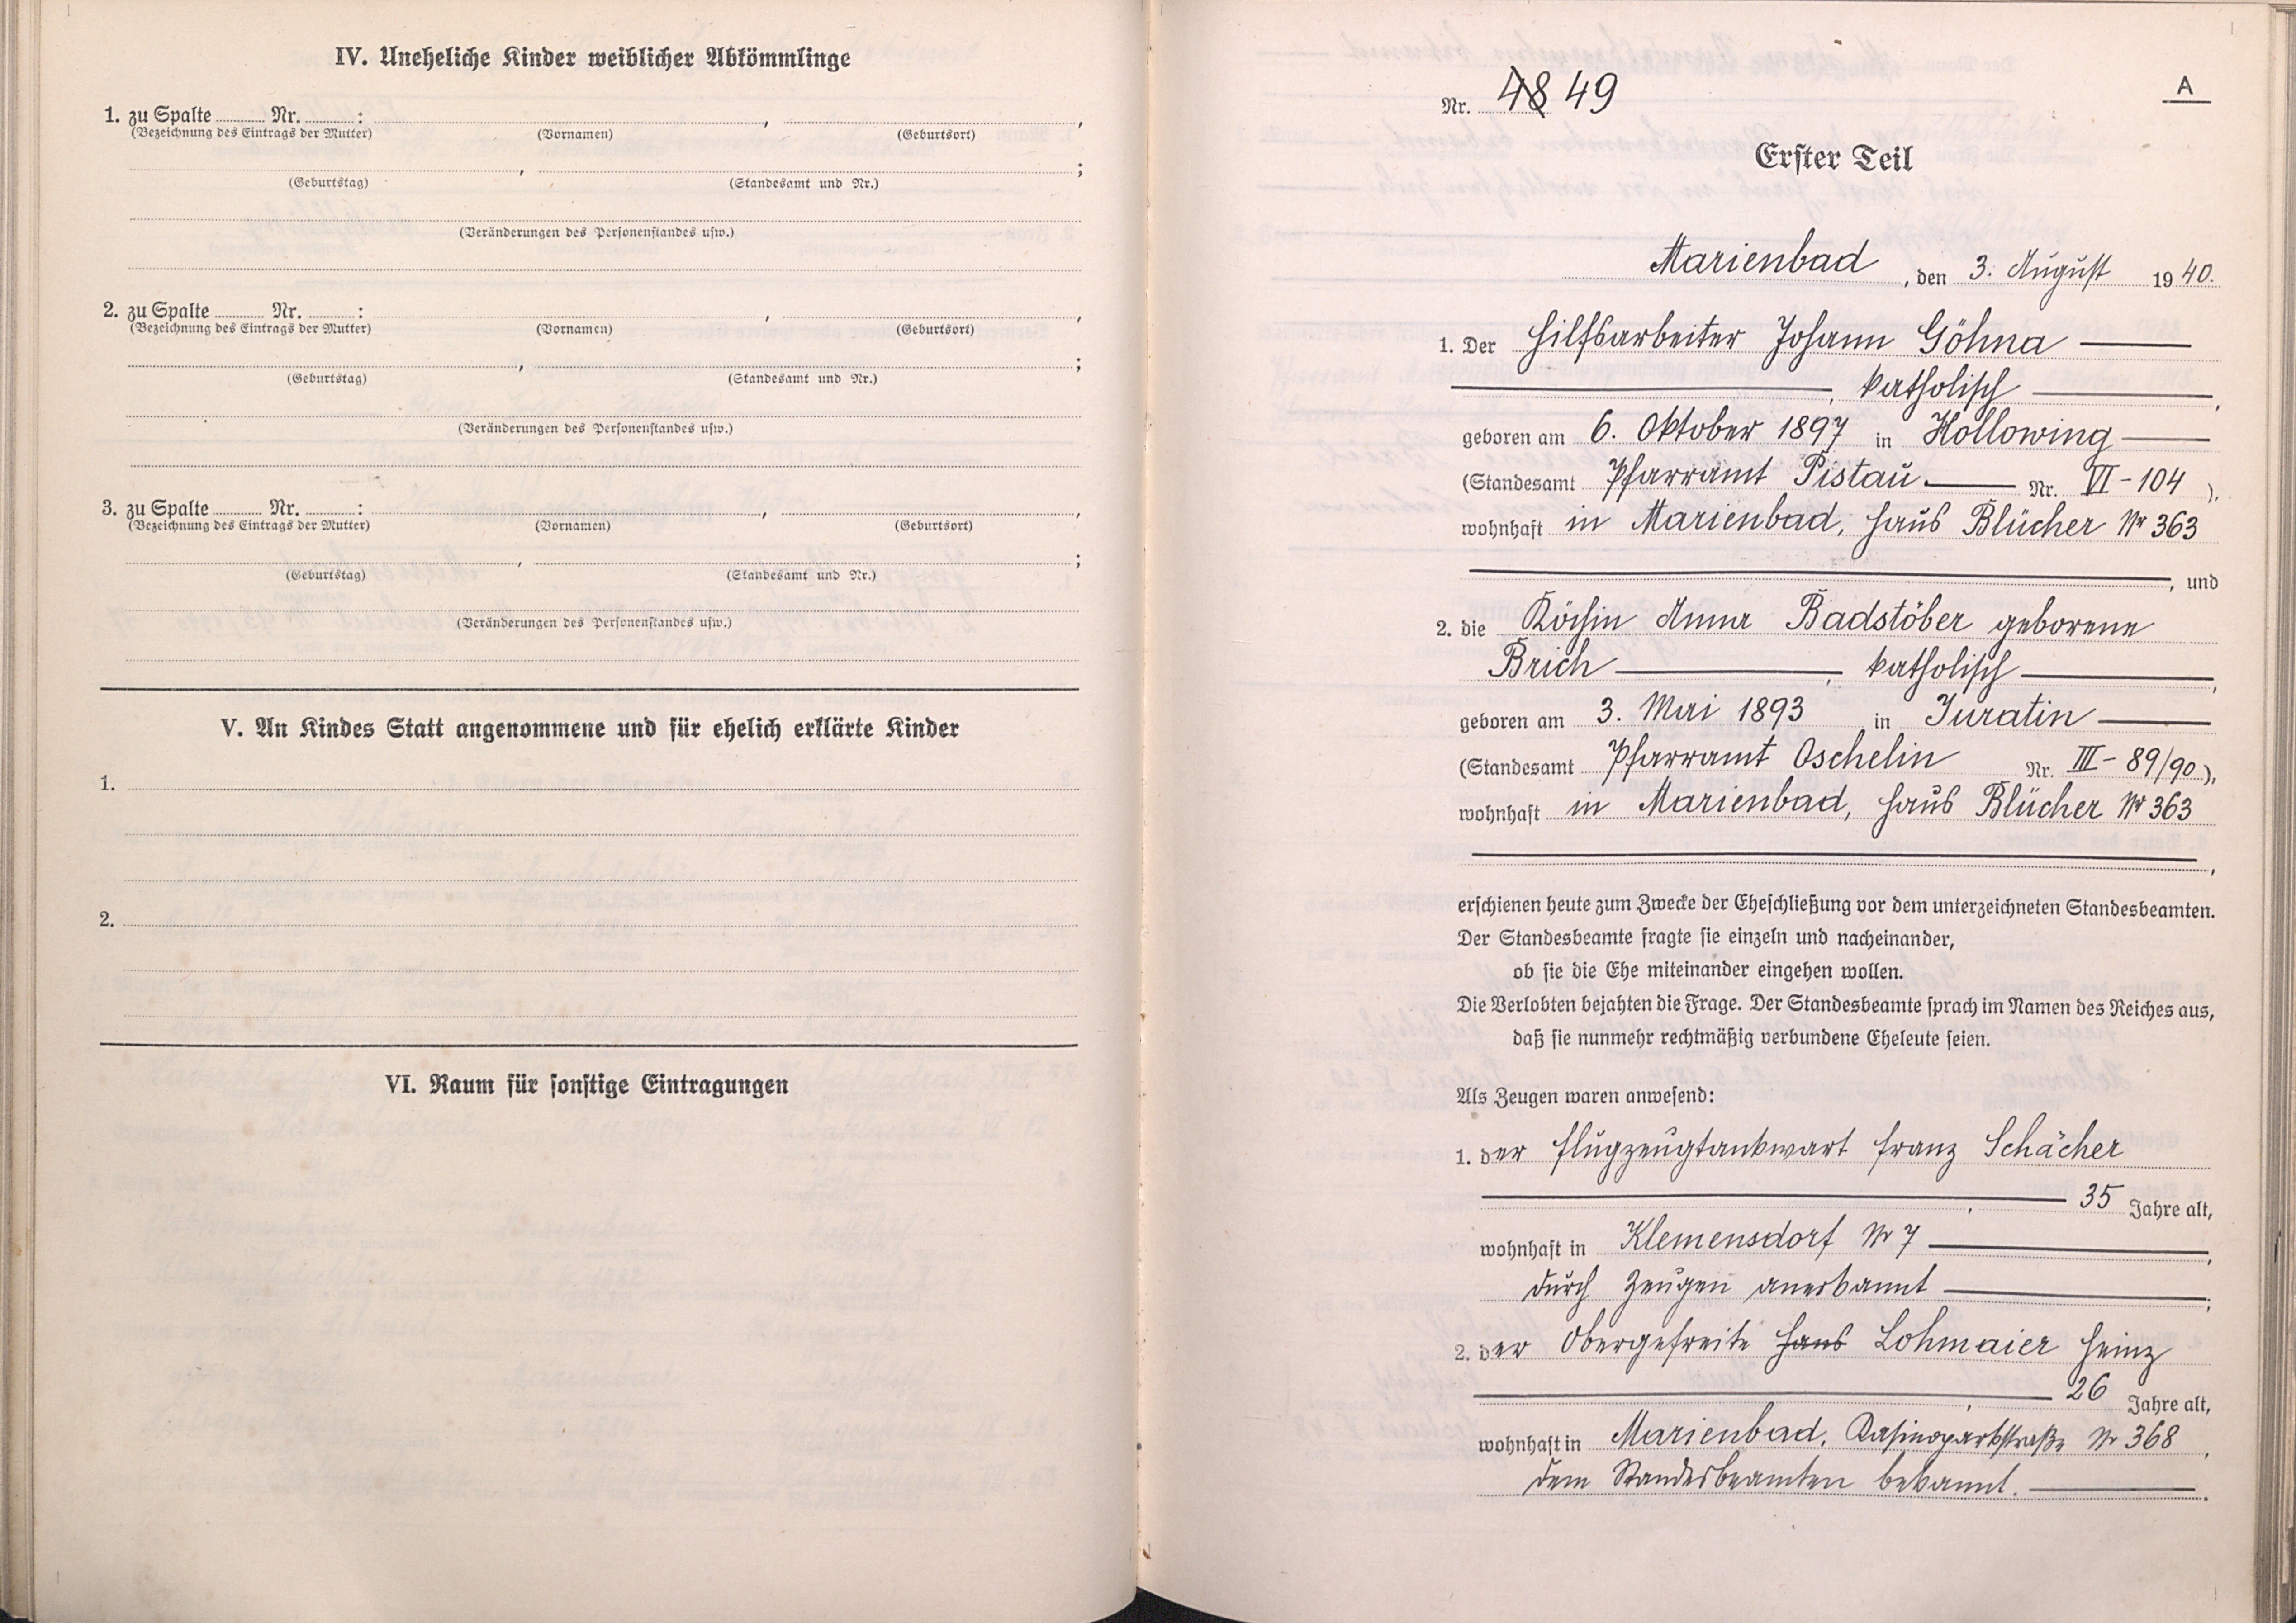 IV. Uneheliche Kinder weiblicher Abkömmlinge
1. zu Spalte ........ Nr. ........ : , ,
(Bezeichnung des Eintrags der Mutter) (Vornamen) (Geburtsort)
, ;
(Geburtstag) (Standesamt und Nr.)
(Veränderungen des Personenstandes usw.)
2. zu Spalte ........ Nr. ........ : , ,
(Bezeichnung des Eintrags der Mutter) (Vornamen) (Geburtsort)
, ;
(Geburtstag) (Standesamt und Nr.)
(Veränderungen des Personenstandes usw.)
3. zu Spalte ........ Nr. ........ : , ,
(Bezeichnung des Eintrags der Mutter) (Vornamen) (Geburtsort)
, ;
(Geburtstag) (Standesamt und Nr.)
(Veränderungen des Personenstandes usw.)
V. An Kindes Statt angenommene und für ehelich erklärte Kinder
1.
2.
VI. Raum für sonstige Eintragungen
A
Nr. 48 49
Erster Teil
Marienbad, den 3. August 1940.
1. Der Hilfsarbeiter Johann Göhna
, katholisch ,
geboren am 6. Oktober 1897 in Hollowing
(Standesamt Pfarramt Pistau Nr. VI - 104),
wohnhaft in Marienbad, Haus Blücher Nr 363
, und
2. die Köchin Anna Badstöber geborene
Brich , katholisch ,
geboren am 3. Mai 1893 in Juratin
(Standesamt Pfarramt Oschelin Nr. III - 89/90),
wohnhaft in Marienbad, Haus Blücher Nr 363
,
erschienen heute zum Zwecke der Eheschließung vor dem unterzeichneten Standesbeamten.
Der Standesbeamte fragte sie einzeln und nacheinander,
ob sie die Ehe miteinander eingehen wollen.
Die Verlobten bejahten die Frage. Der Standesbeamte sprach im Namen des Reiches aus,
daß sie nunmehr rechtmäßig verbundene Eheleute seien.
Als Zeugen waren anwesend:
1. der Flugzeugtankwart Franz Schächer
, 35 Jahre alt,
wohnhaft in Klemensdorf Nr 7 ,
durch Zeugen anerkannt ;
2. der Obergefreite Hans Lohmaier Heinz
, 26 Jahre alt,
wohnhaft in Marienbad, Kasinoparkstraße Nr 368 ,
dem Standesbeamten bekannt. .